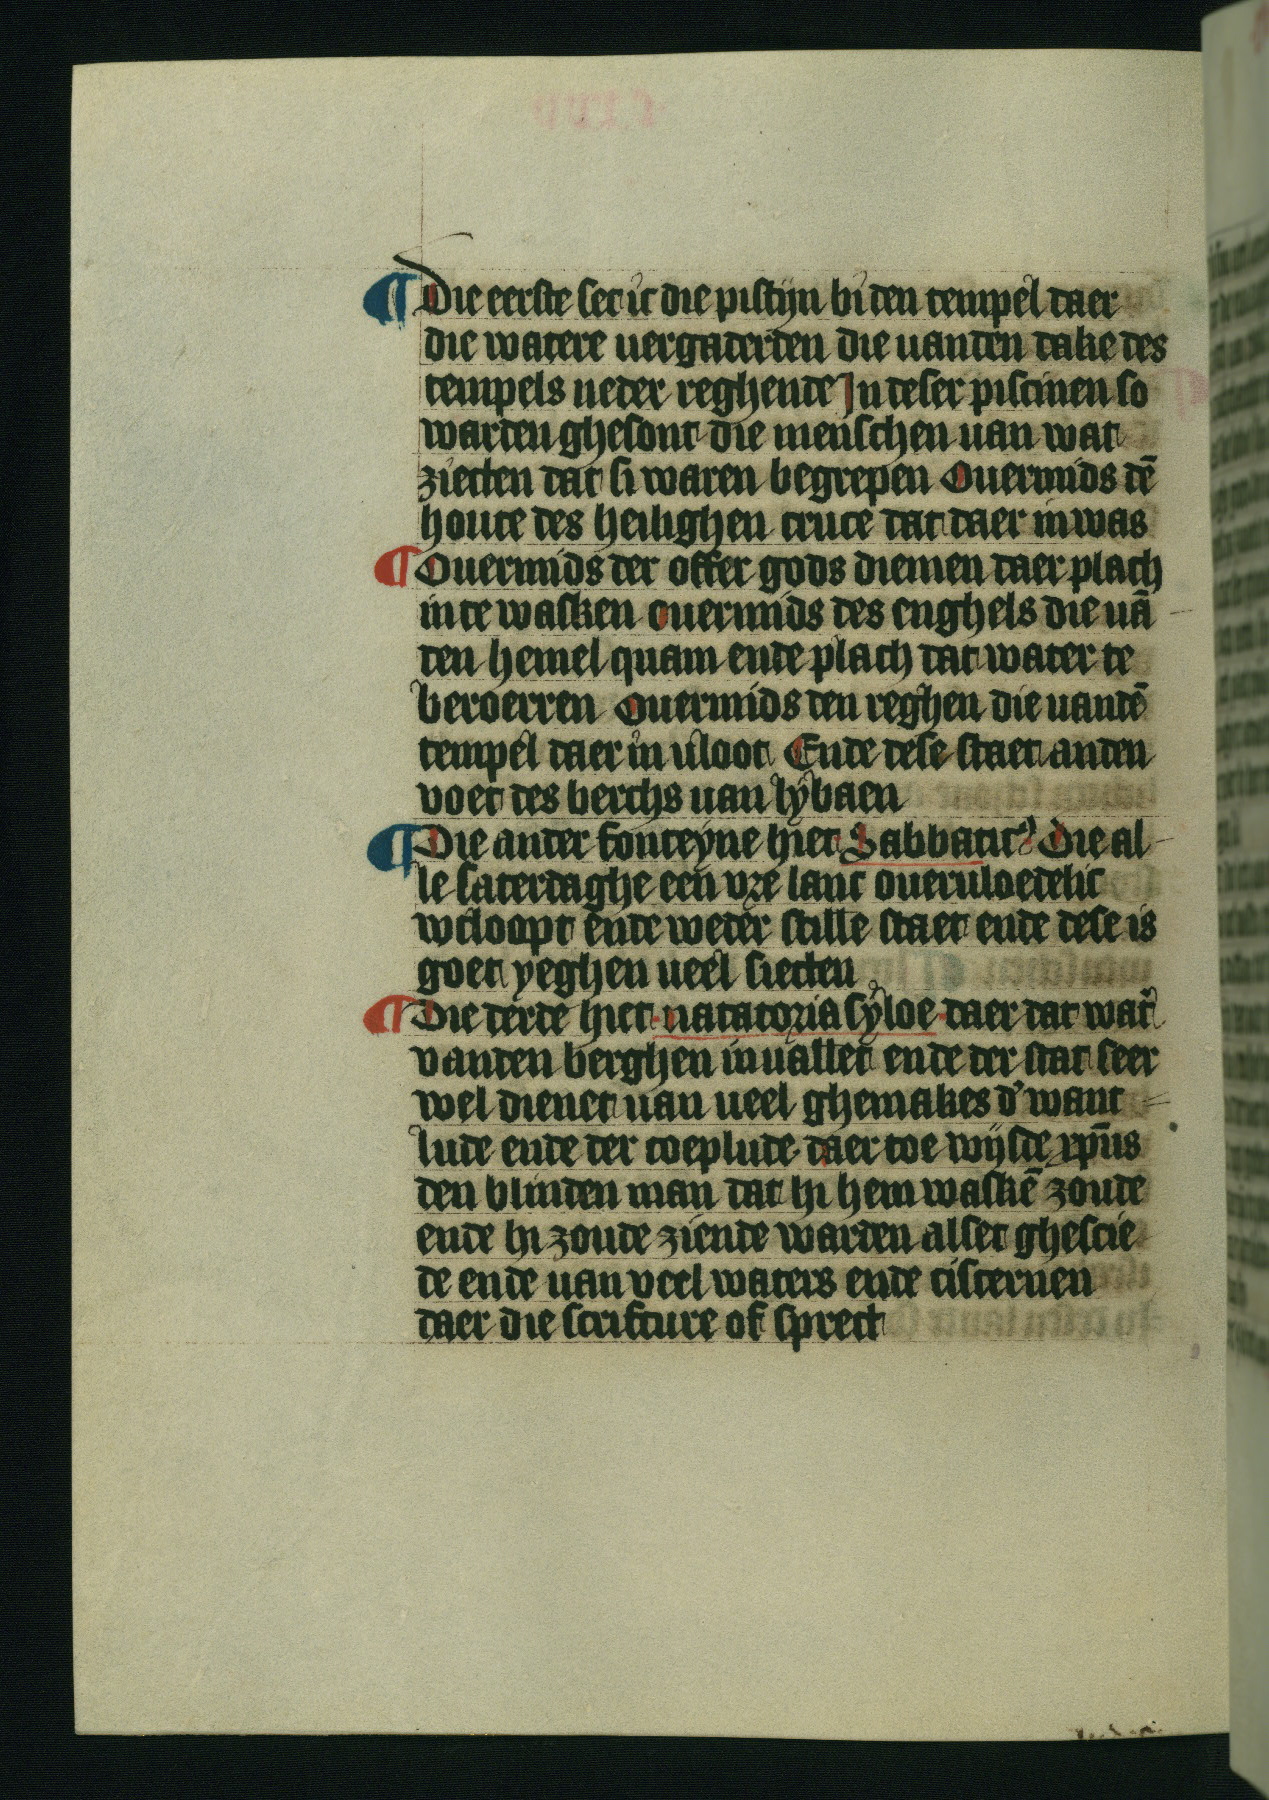 ¶ Die eerste set ic die pistijn bi den tempel daer
die watere uergaderden die uanden dake des
tempels neder reghende In deser piscinen so
warden ghesont die menschen uan wat
ziecten dat si waren begrepen Ouermids dē
houte des heilighen cruce dat daer in was
¶ Ouermids der offer gods diemen daer plach
in te wasken ouermids des enghels die uā
den hemel quam ende plach dat water te
beroerren Ouermids den reghen die uandē
tempel daer in uloot Ende dese staet anden
voet des berchs uan lybaen
¶ Die ander fonteyne hiet Sabbatic⁹ Die al
le saterdaghe een vre lanc oueruloedelic
wtloopt ende weder stille staet ende dese is
goet yeghen ueel siecten
¶ Die derde hiet natatoria syloe daer dat wat̃
vanden berghen in uallet ende der stat seer
wel dienet uan ueel ghemakes d’ want
lude ende der coeplude daer toe wijsde xp̄us
den blinden man dat hi hem waskē zoude
ende hi zoude ziende warden alset ghescie
de ende uan veel waters ende cisternen
daer die scrifture of sprect